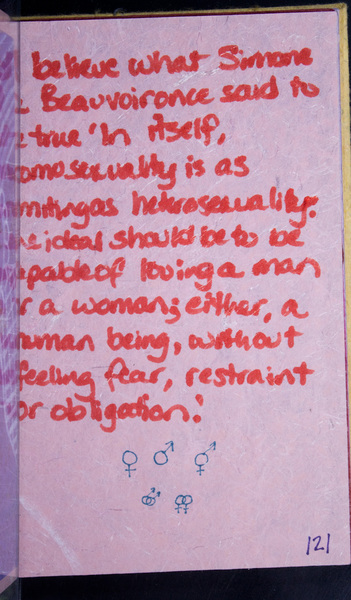 believe what Simone
Beauvoir once said to
true 'In itself,
omosexuality is as
miting as heterosexuality:
ideal should be to be
apable of loving a man
r a woman; either, a
human being, without
feeling fear, restraint
or obligation.'
♀ ♂ ⚥
⚣ ⚢
121